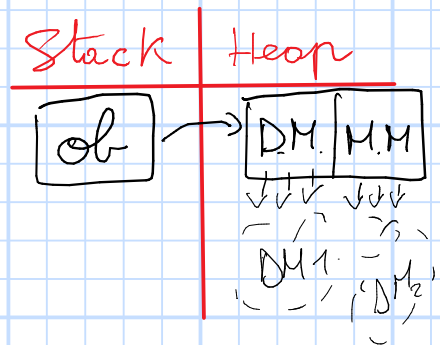 Stack Heap
ob D.M. M.M
DM1.
DM2